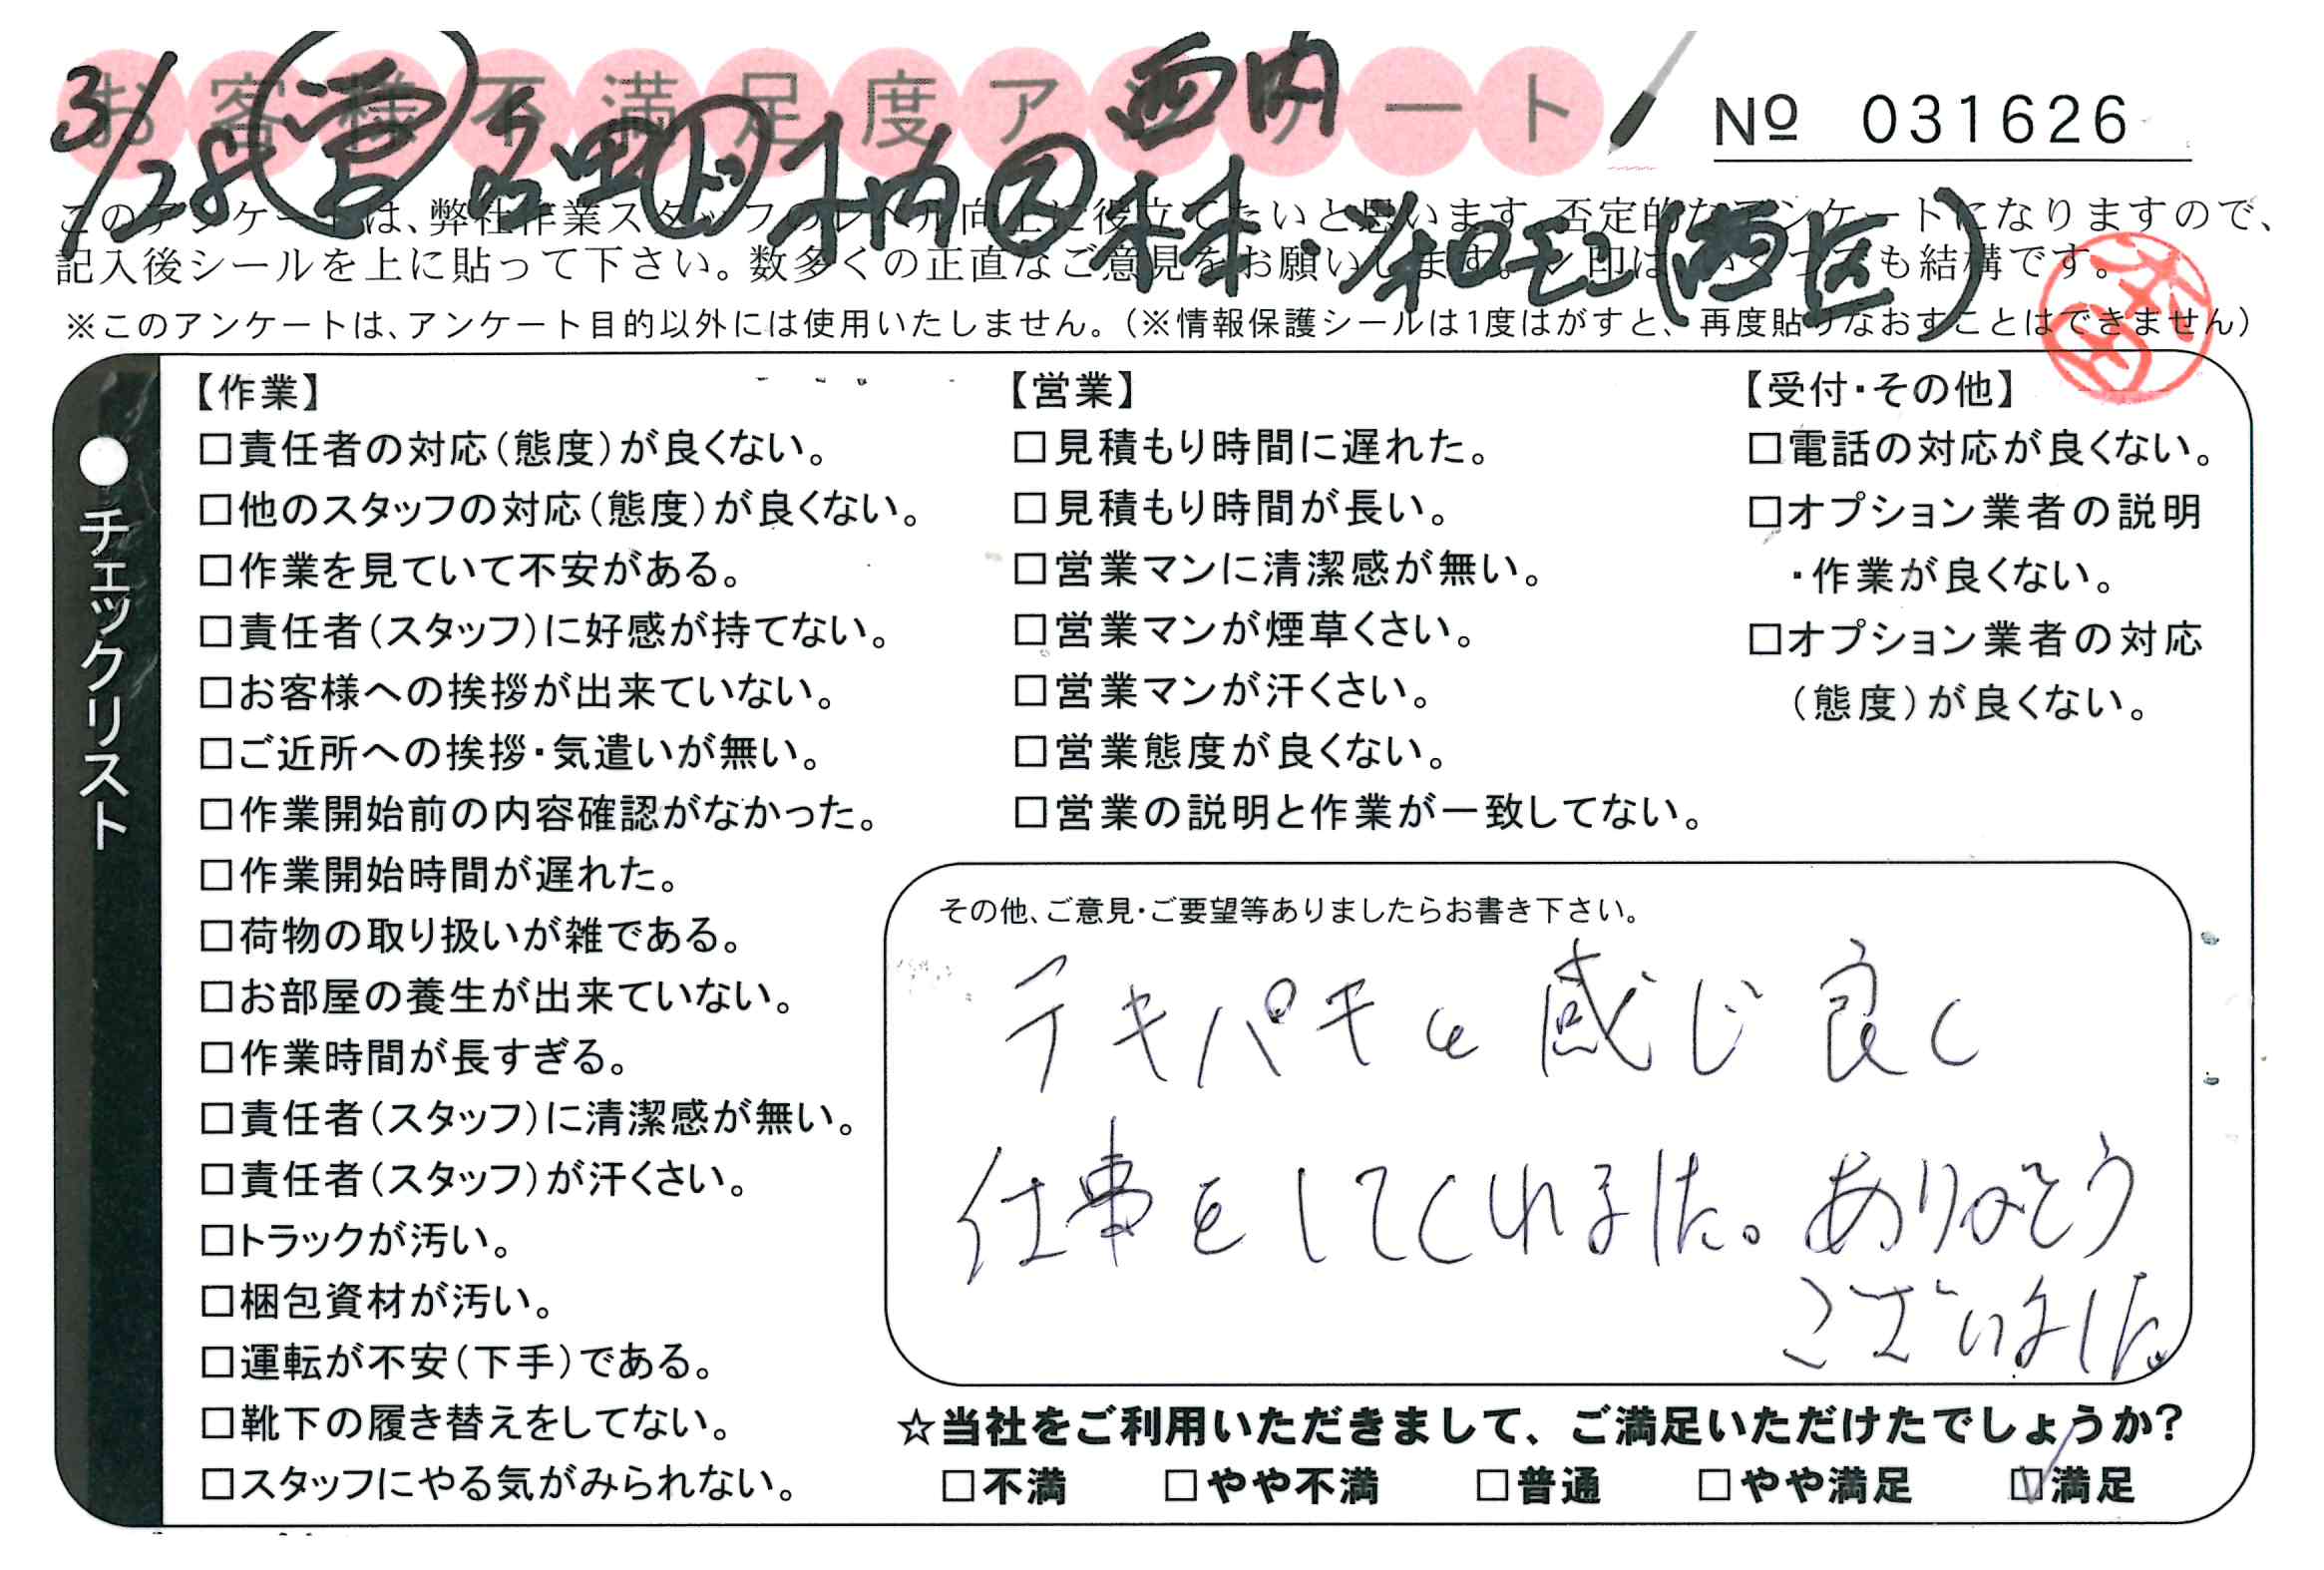 お客様不満足度アンケート
№ 031626
3/28 営 名田 ド 木内 ス 西内
このアンケートは、弊社作業スタッフのレベル向上に役立てたいと思います。否定的なアンケートになりますので、
記入後シールを上に貼って下さい。数多くの正直なご意見をお願いします。レ印はいくつでも結構です。
(西区)
※このアンケートは、アンケート目的以外には使用いたしません。(※情報保護シールは1度はがすと、再度貼りなおすことはできません)
●チェックリスト
【作業】
□責任者の対応(態度)が良くない。
□他のスタッフの対応(態度)が良くない。
□作業を見ていて不安がある。
□責任者(スタッフ)に好感が持てない。
□お客様への挨拶が出来ていない。
□ご近所への挨拶・気遣いが無い。
□作業開始前の内容確認がなかった。
□作業開始時間が遅れた。
□荷物の取り扱いが雑である。
□お部屋の養生が出来ていない。
□作業時間が長すぎる。
□責任者(スタッフ)に清潔感が無い。
□責任者(スタッフ)が汗くさい。
□トラックが汚い。
□梱包資材が汚い。
□運転が不安(下手)である。
□靴下の履き替えをしてない。
□スタッフにやる気がみられない。
【営業】
□見積もり時間に遅れた。
□見積もり時間が長い。
□営業マンに清潔感が無い。
□営業マンが煙草くさい。
□営業マンが汗くさい。
□営業態度が良くない。
□営業の説明と作業が一致してない。
【受付・その他】
□電話の対応が良くない。
□オプション業者の説明
・作業が良くない。
□オプション業者の対応
(態度)が良くない。
その他、ご意見・ご要望等ありましたらお書き下さい。
テキパキと感じ良く
仕事をしてくれました。ありがとう
ございました。
☆当社をご利用いただきまして、ご満足いただけたでしょうか?
□不満 □やや不満 □普通 □やや満足 ☑満足